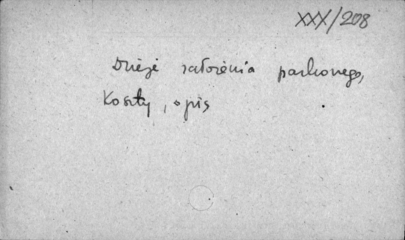 XXX/208
Dzieje założenia parkowego,
Koszty, opis